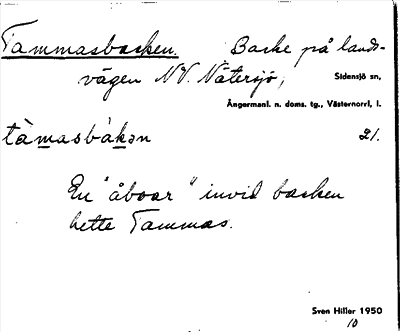 Tammasbacken. Backe på lands-
vägen NV. Nätersjö, Sidensjö sn,
Ångermanl. n. doms. tg., Västernorrl. l.
tàmasbàkən 21.
En "åboar" invid backen
hette Tammas.
Sven Hiller 1950
10